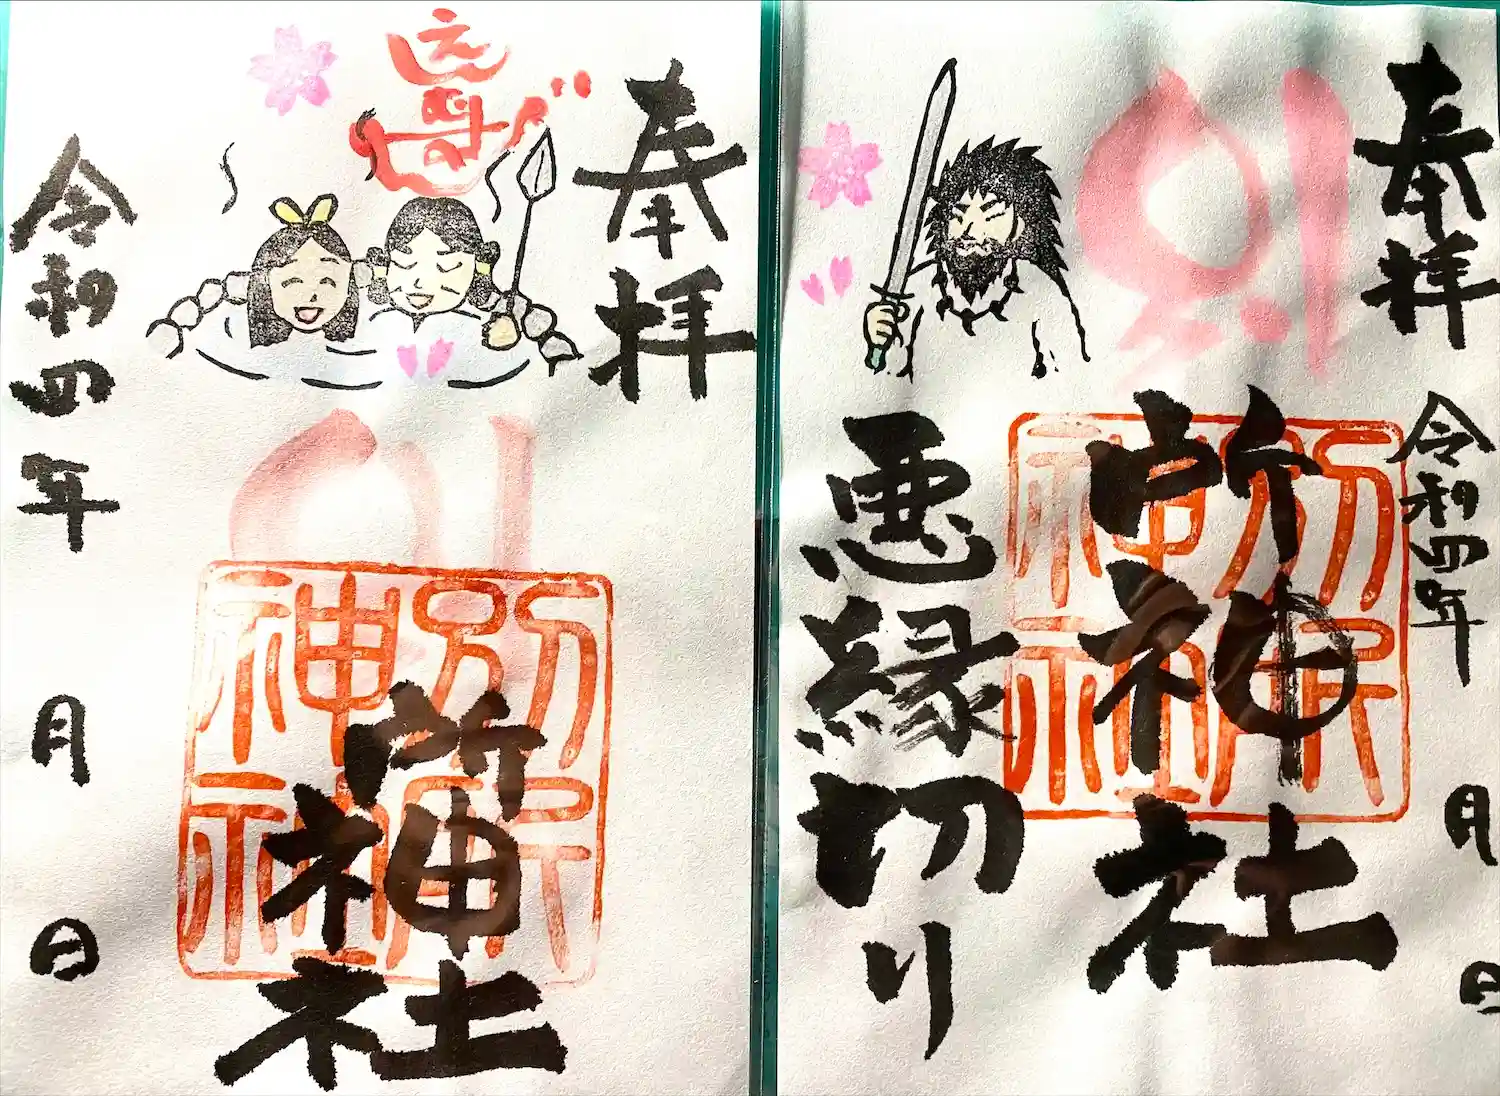 奉拝
令和四年 月 日
別所神社
別所
神社
悪縁切り
奉拝
別所神社
別所
神社
令和四年 月 日